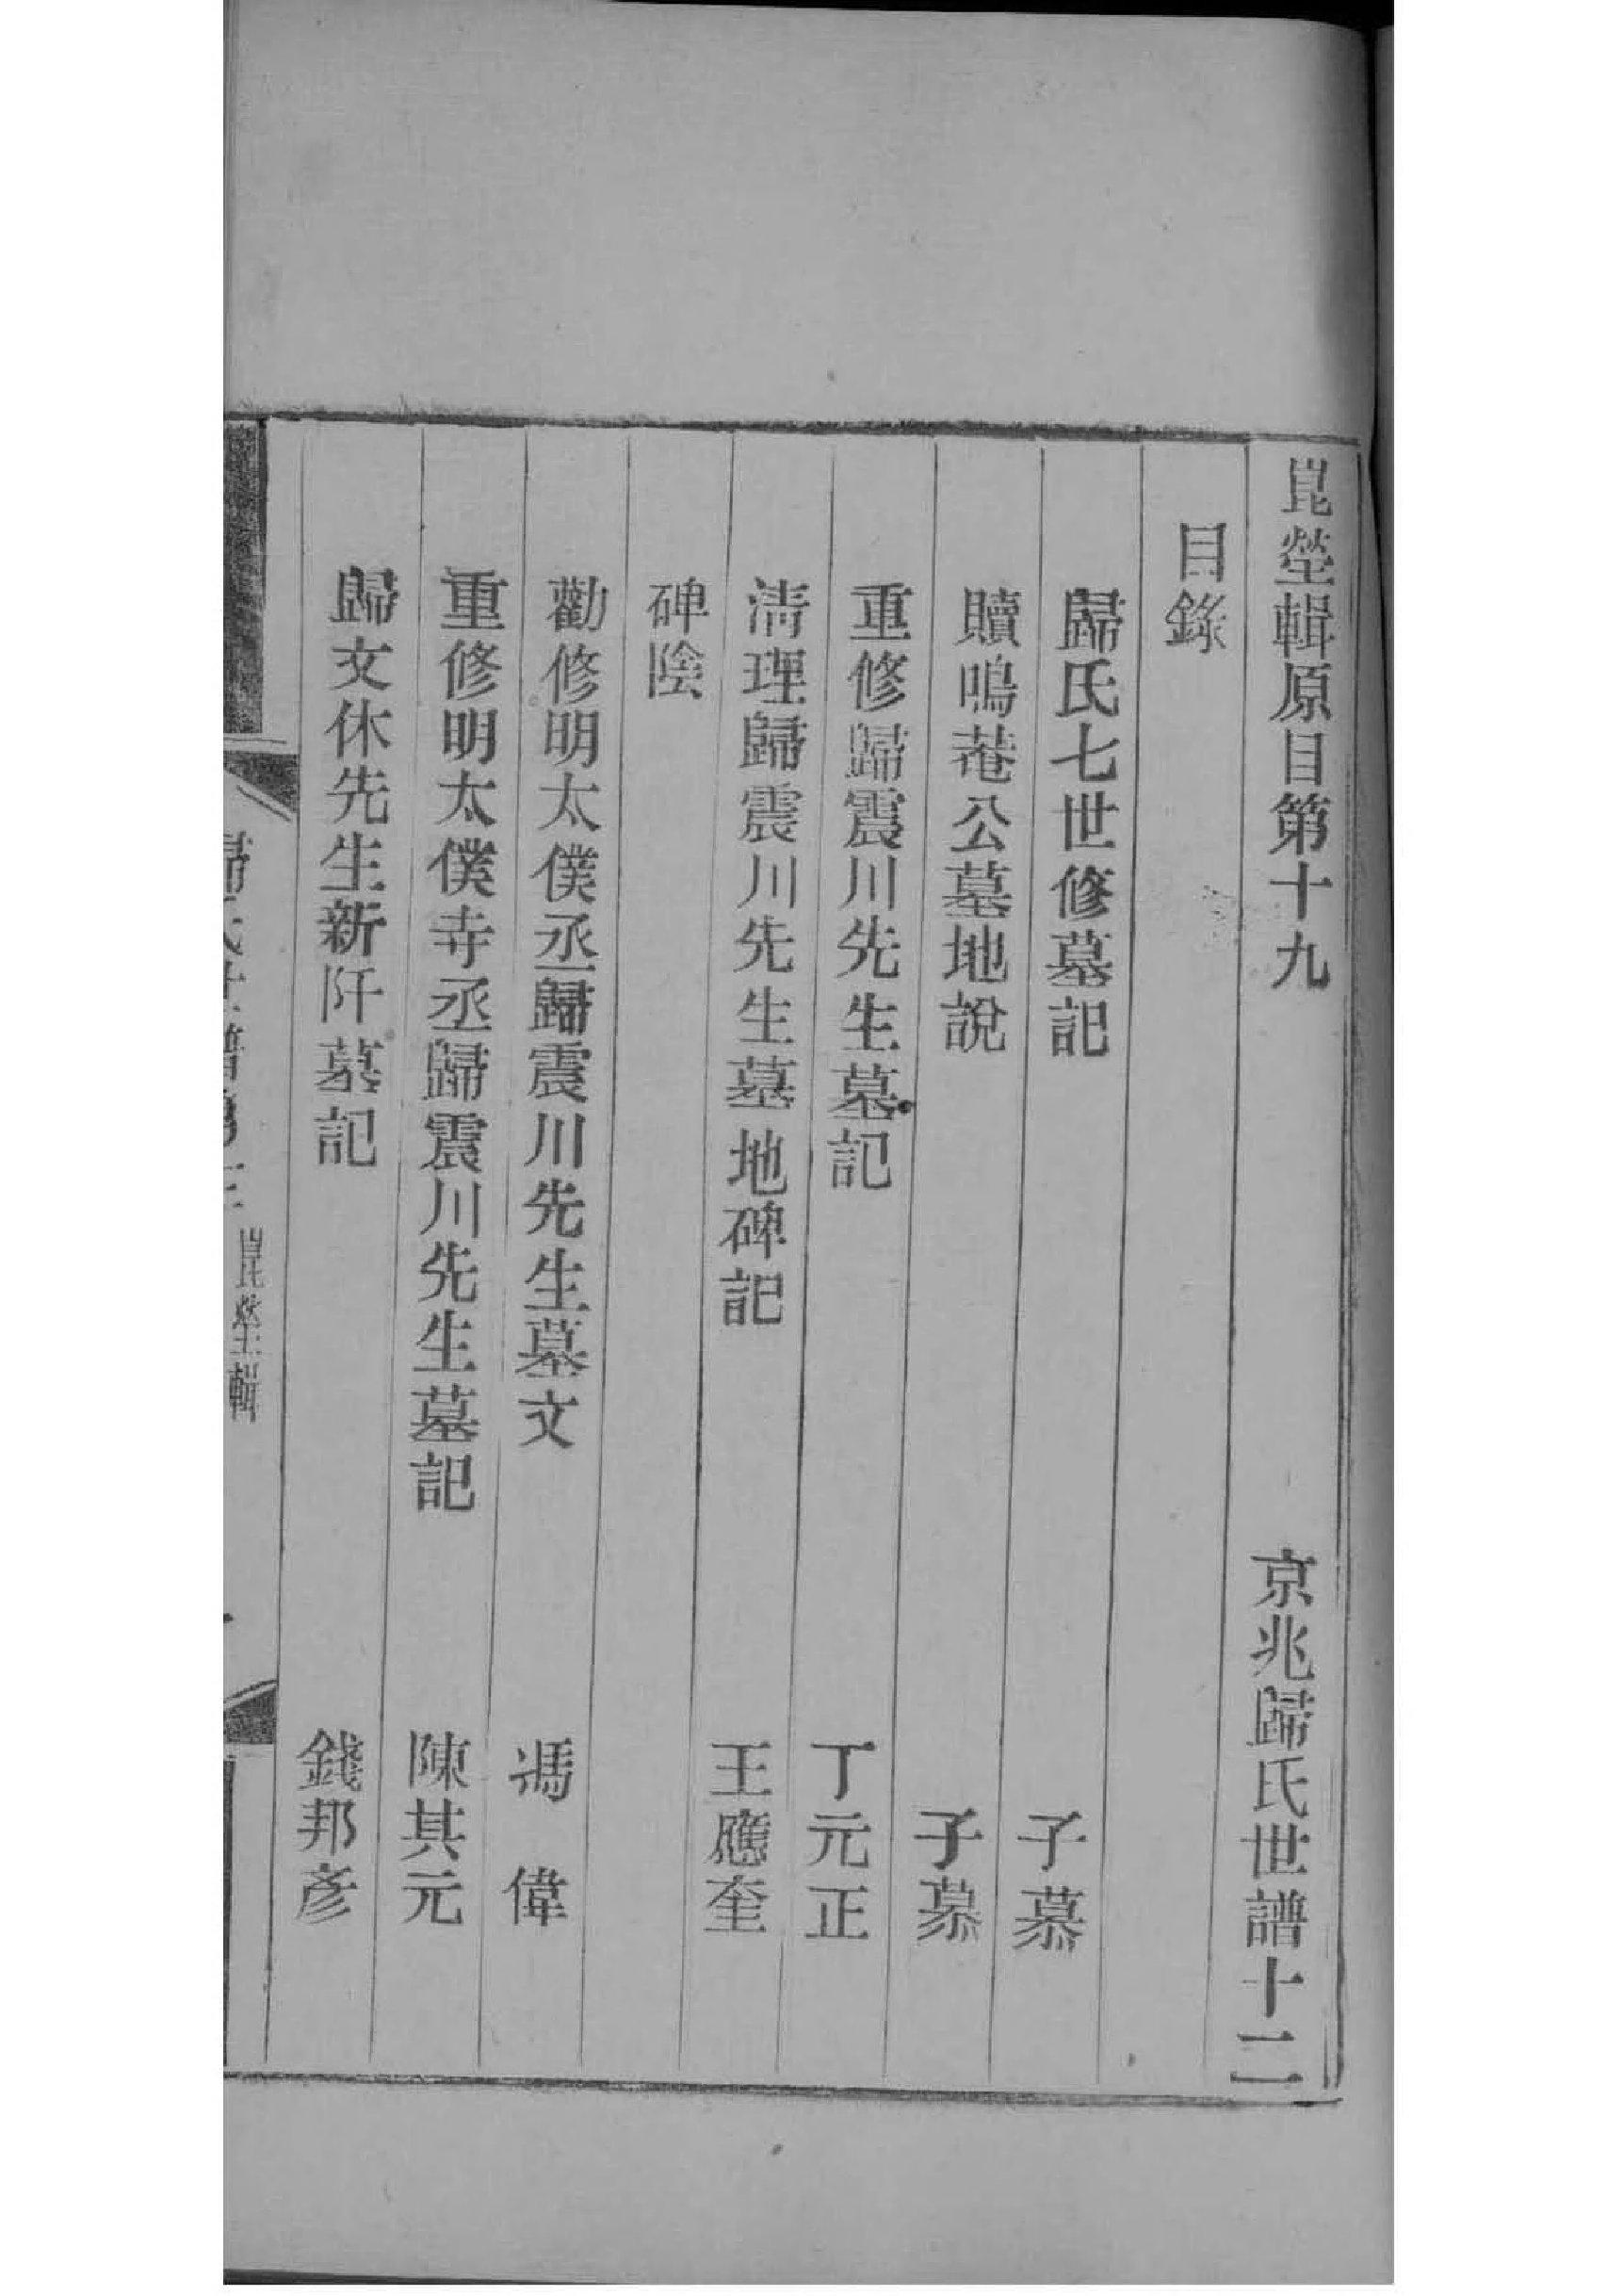 崑塋輯原目第十九 京兆歸氏世譜十二
目錄
歸氏七世修墓記 子慕
贖鳴菴公墓地說 子慕
重修歸震川先生墓記 丁元正
清理歸震川先生墓地碑記 王應奎
碑陰
勸修明太僕丞歸震川先生墓文 馮偉
重修明太僕寺丞歸震川先生墓記 陳其元
歸文休先生新阡墓記 錢邦彥
崑塋輯